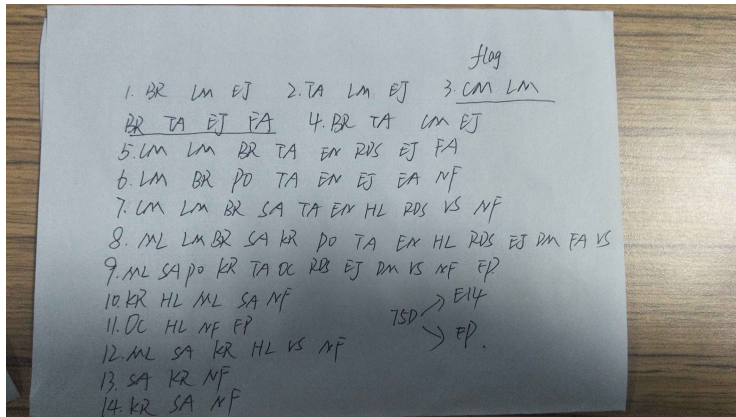 flag
1. BR LM EJ 2. TA LM EJ 3. CM LM
BR TA EJ FA 4. BR TA CM EJ
5. CM LM BR TA EN RDS EJ FA
6. LM BR PO TA EN EJ EA NF
7. CM LM BR SA TA EN HL RDS VS NF
8. ML LM BR SA KR PO TA EN HL RDS EJ DM FA VS
9. ML SA PO KR TA OC RDS EJ DM VS NF EP
10. KR HL ML SA NF
11. OC HL NF EP
75D E14
EP.
12. ML SA KR HL VS NF
13. SA KR NF
14. KR SA NF